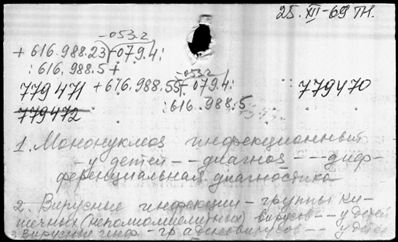 25.XII-69 тн.
-053.2
+616.988.23)-079.4:
:616.988.5+
-053.2
779471 +616.988.55)-079.4: 779470
779472 :616.988.5
1. Мононуклеоз инфекционный
- у детей - - диагноз - - - диф-
ференциальная диагностика
2. Вирусные инфекции - группы ки-
шечных (неполиомиелитных) вирусов - - у детей
3. Вирусные инф. - гр. аденовирусов - - у детей